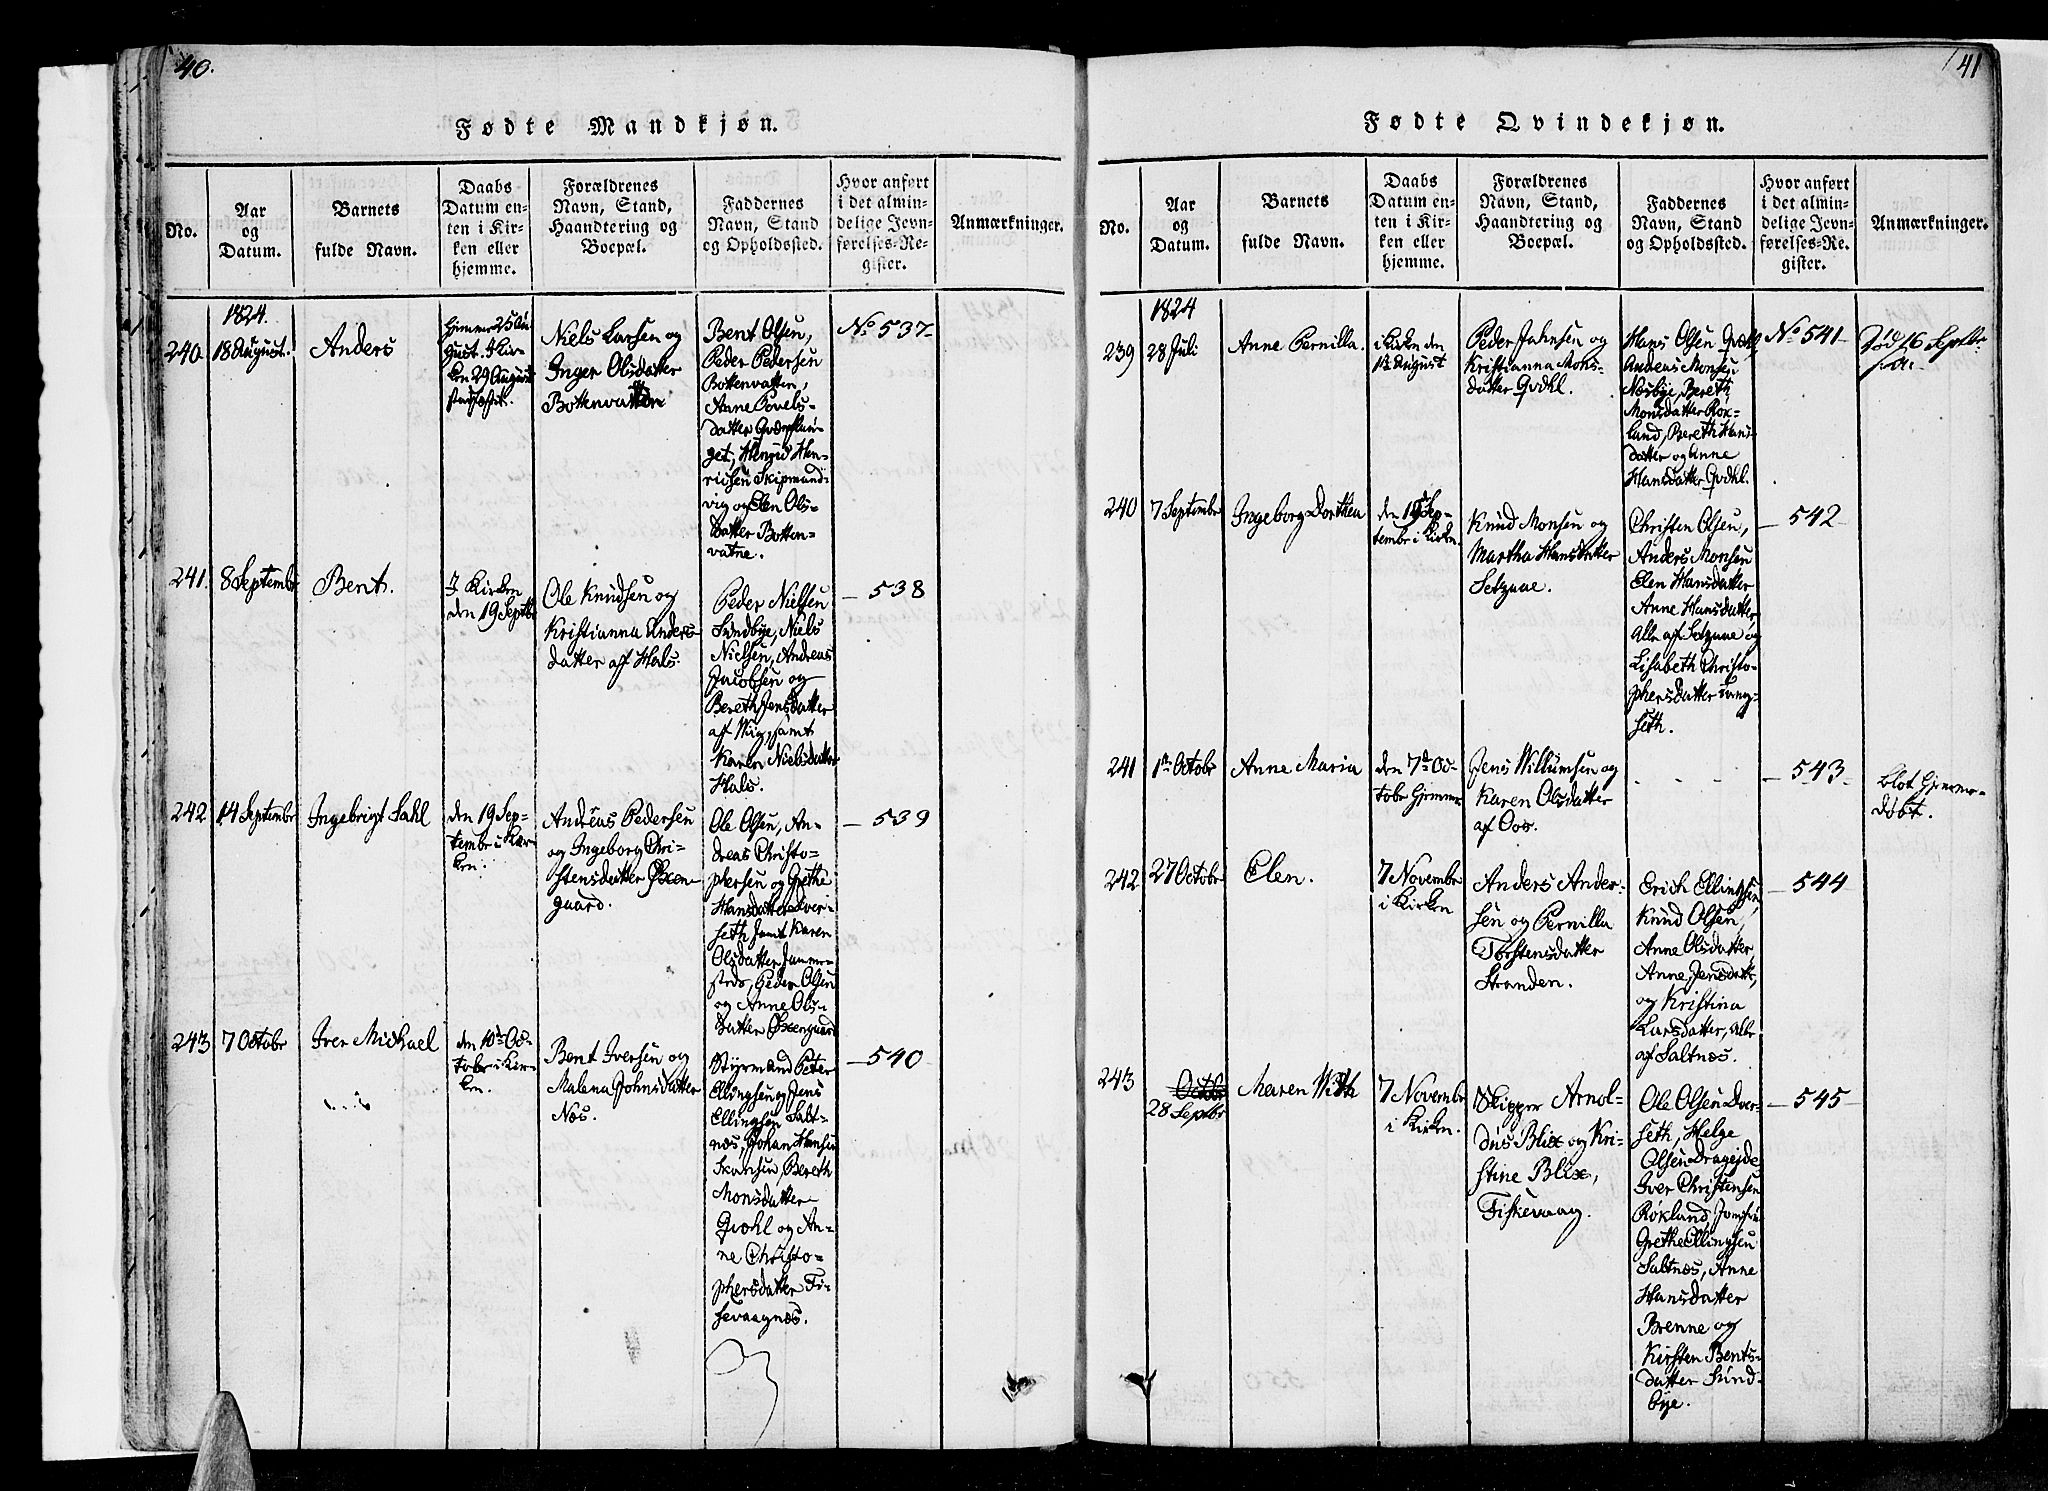 40.
Fødte Mandkjøn.
No.
Aar
og
Datum.
Barnets
fulde Navn.
Daabs
Datum en-
ten i Kir-
ken eller
hjemme.
Forældrenes
Navn, Stand,
Haandtering og
Boepæl.
Faddernes
Navn, Stand
og Opholdssted.
Hvor anført
i det almin-
delige Jevn-
førelses-Re-
gister.
Anmærkninger.
1824.
240.
18 August.
Anders
Hjemme 25 Au-
gust. I Kir-
ken 29 August
Niels Larsen og
Inger Olsdatter
Bottenvatten
Bent Olsen,
Peder Pedersen
Bottenvatten,
Anne Povels-
datter
get, Hen-
richsen Skipmand-
vig og Elen Ols-
datter Botten-
vatne.
No. 537-
241.
8 Septembr
Bent.
I Kirken
den 19 Septbr
Ole Knudsen og
Kristianna Anders-
datter af Hals.
Peder Nielsen
Sundbye, Niels
Nielsen, Andreas
Jacobsen og
Bereth Jensdatter
af Wiig, samt
Karen Nielsdatter
Hals.
- 538
242
14 Septembr
Ingebrigt Dahl
den 19 Sep-
tembr i Kir-
ken.
Andreas Pedersen
og Ingeborg Chri-
stensdatter Øxen-
guard.
Ole Olsen, An-
dreas Christo-
phersen og Grethe
Hansdatter Dver-
seth samt Karen
Olsdatter
Peder Olsen
og Anne Ols-
datter Øxenguard
- 539
243
7 Octobr
Iver Michael
den 10de Oc-
tobr i Kir-
ken.
Bent Iversen og
Malena Johnsdatter
Næs.
Styrmand Peter
Ellingsen og Jens
Ellingsen Salt-
næs, Johan Hansen
Skansen, Bereth
Monsdatter
Qvahl og An-
ne Christo-
phersdatter Fi-
skevaagnæs.
- 540
41
Fødte Qvindekjøn.
No.
Aar
og
Datum.
Barnets
fulde Navn.
Daabs
Datum en-
ten i Kir-
ken eller
hjemme.
Forældrenes
Navn, Stand,
Haandtering og
Boepæl.
Faddernes
Navn, Stand
og Opholdssted.
Hvor anført
i det almin-
delige Jevn-
førelses-Re-
gister.
Anmærkninger.
1824
239
28 Juli
Anne Pernilla.
i Kirken den
1te August
Peder Jahnsen og
Kristianna Mons-
datter Qvahl.
Hans Olsen Qvahl,
Andreas Monsen
Næsbye, Bereth
Monsdatter Røk-
land, Bereth Hans-
datter og Anne
Hansdatter Qvahl.
No. 541-
Død 16 Septbr
240
7 Septembr
Ingeborg Dorthea
den 19 Sep-
tembr i Kirken.
Knud Monsen og
Martha Hansdatter
Setzaae.
Christen Olsen,
Anders Monsen
Elen Hansdatter
Anne Hansdatter,
Alle af Setzaae og
Lisabeth Christo-
phersdatter Tveg-
seth.
- 542
241
1te Octobr
Anne Maria
den 7de Oc-
tobr Hjemme
Jens Willumsen og
Karen Olsdatter
af Oos.
- 543-
blot Hjemme-
døbt.
242
27 Octobr
Elen.
7 Novembr
i Kirken
Anders Ander-
sen og Pernilla
Torstensdatter
Stranden.
Erich Ellingsen,
Knud Olsen,
Anne Olsdatter,
Anne Jensdatter,
og Kristina
Larsdatter, Alle
af Saltnæs.
- 544
243
Octobr
28 Septbr
Maren With
7 Novembr
i Kirken.
Skipper Arnol-
dus Blix og Kri-
stine Blix,
Fiskevaag.
Ole Olsen Dver-
seth, Helge
Olsen Drageide,
Iver Christensen
Røkland, Jomfru
Grethe Ellingsen
Saltnæs, Anne
Hansdatter
Brenne og
Kirsten Bents-
datter Sund-
bye.
- 545-